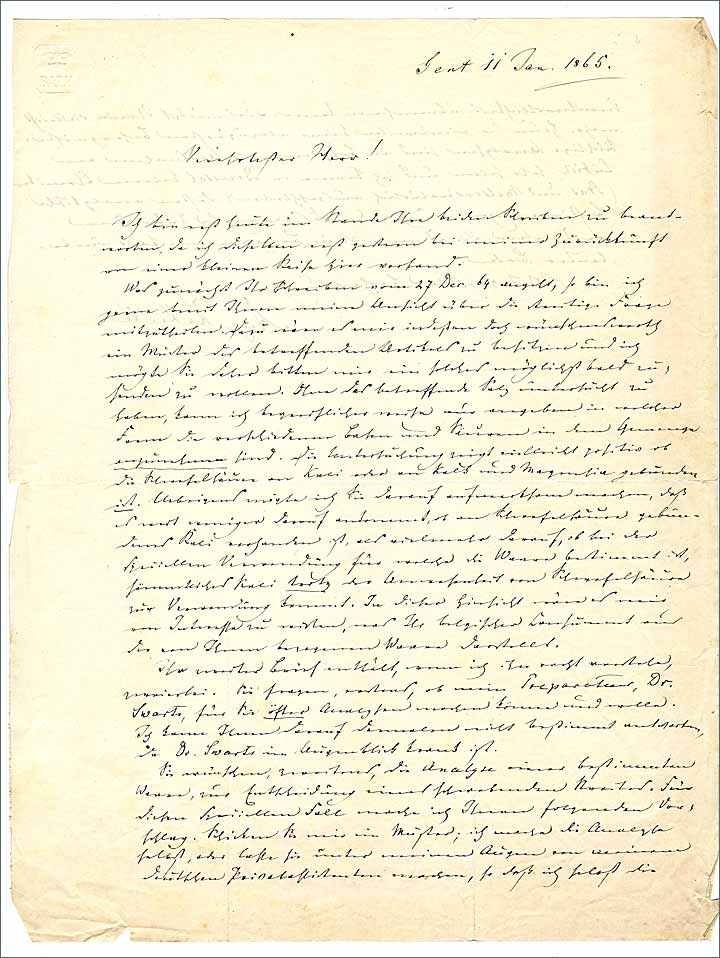 Gent 11 Jan. 1865.
Verehrtester Herr!
Ich bin erst heute im Stande Ihre beiden Schreiben zu beant-
worten, da ich dieselben erst gestern bei meiner Zurückkunft
von einer kleinen Reise hier vorfand.
Was zunächst Ihr Schreiben vom 27 Dec. 64 angeht, so bin ich
gerne bereit Ihnen meine Ansicht über die streitige Frage
mitzutheilen. Dazu wäre es mir indessen doch wünschenswerth
ein Muster des betreffenden Artikels zu besitzen und ich
möchte Sie daher bitten mir ein solches möglichst bald zu-
senden zu wollen. Ohne das betreffende Salz untersucht zu
haben, kann ich begreiflicher weise nur angeben in welcher
Form die verschiedenen Basen und Säuren in dem Gemenge
anzunehmen sind. Die Untersuchung zeigt vielleicht positiv ob
die Schwefelsäure an Kali oder an Kalk und Magnesia gebunden
ist. Uebrigens möchte ich Sie darauf aufmerksam machen, daß
es weit weniger darauf ankommt, ob an Schwefelsäure gebun-
denes Kali vorhanden ist, als vielmehr darauf, ob bei der
speciellen Verwendung für welche die Waare bestimmt ist,
sämmtliches Kali trotz der Anwesenheit von Schwefelsäure
zur Verwendung kommt. In dieser Hinsicht wäre es mir
von Interesse zu wissen, was Ihr belgischer Consument aus
der von Ihnen bezogenen Waare darstellt.
Ihr zweiter Brief enthält, wenn ich ihn recht verstehe,
zweierlei. Sie fragen, erstens, ob mein Preparateur, Dr.
Swarts, für Sie öfter Analysen machen könne und wolle.
Ich kann Ihnen darauf dermalen nicht bestimmt antworten,
da Dr. Swarts im Augenblick krank ist.
Sie wünschen, zweitens, die Analyse einer bestimmten
Waare, zur Entscheidung eines schwebenden Streites. Für
diesen speciellen Fall mache ich Ihnen folgenden Vor-
schlag. Schicken Sie mir ein Muster; ich mache die Analyse
selbst, oder lasse sie unter meinen Augen von meinem
deutschen Privatassistenten machen, so daß ich selbst die